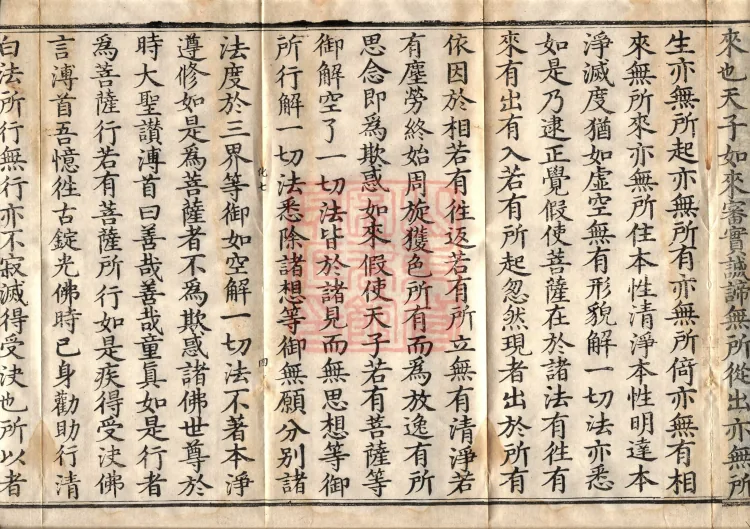 來也天子如來審實誠諦無所從出亦無所
生亦無所起亦無所有亦無所倚亦無有相
來無所來亦無所住本性清淨本性明達本
淨滅度猶如虛空無有形貌解一切法亦悉
如是乃逮正覺假使菩薩在於諸法有徃有
來有出有入若有所起忽然現者出於所有
依因於相若有往返若有所立無有清淨若
有塵勞終始周旋獲色所有而為放逸有所
思念即為欺惑如來假使天子若有菩薩等
御解空了一切法皆於諸見而無思想等御
所行解一切法悉除諸想等御無願分別諸
化七 四
法度於三界等御如空解一切法不著本淨
遵修如是為菩薩者不為欺惑諸佛世尊於
時大聖讃溥首曰善哉善哉童真如是行者
為菩薩行若有菩薩所行如是疾得受決佛
言溥首吾憶徃古錠光佛時已身勸助行清
白法所行無行亦不寂滅得受決也所以者